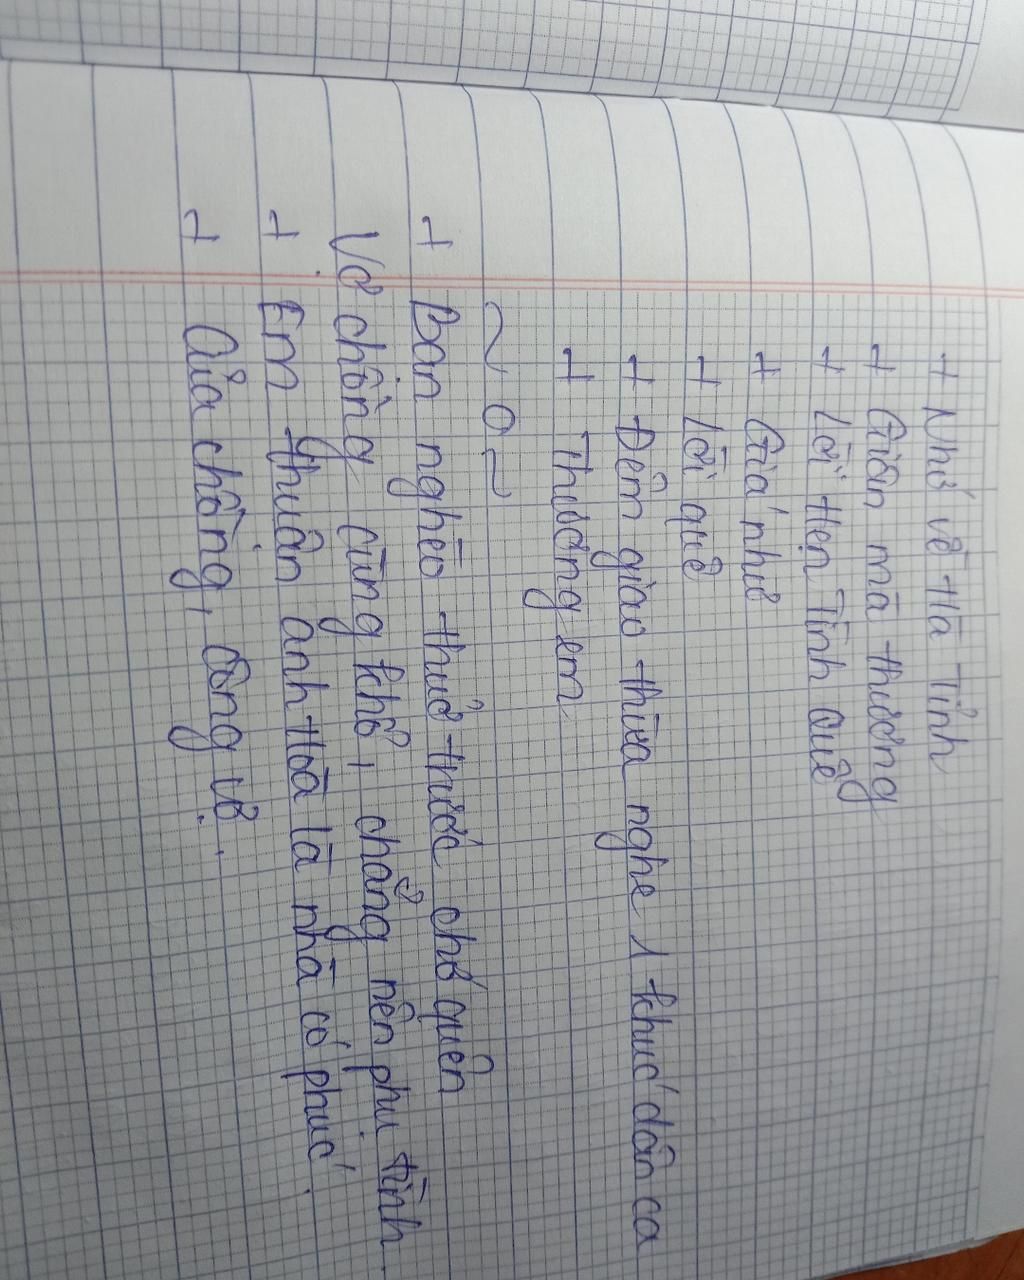 + Nhớ về Hà Tĩnh
+ Giận mà thương
+ Lời Hẹn Tình Quê
+ Giá như
+ Lời quê
+ Đêm giao thừa nghe 1 khúc dân ca
+ Thương em
~ o ~
+ Bạn nghèo thuở trước chớ quên
Vợ chồng cùng khổ, chẳng nên phụ tình
+ Em thuận anh Hòa là nhà có phúc.
+ Của chồng, công vợ.